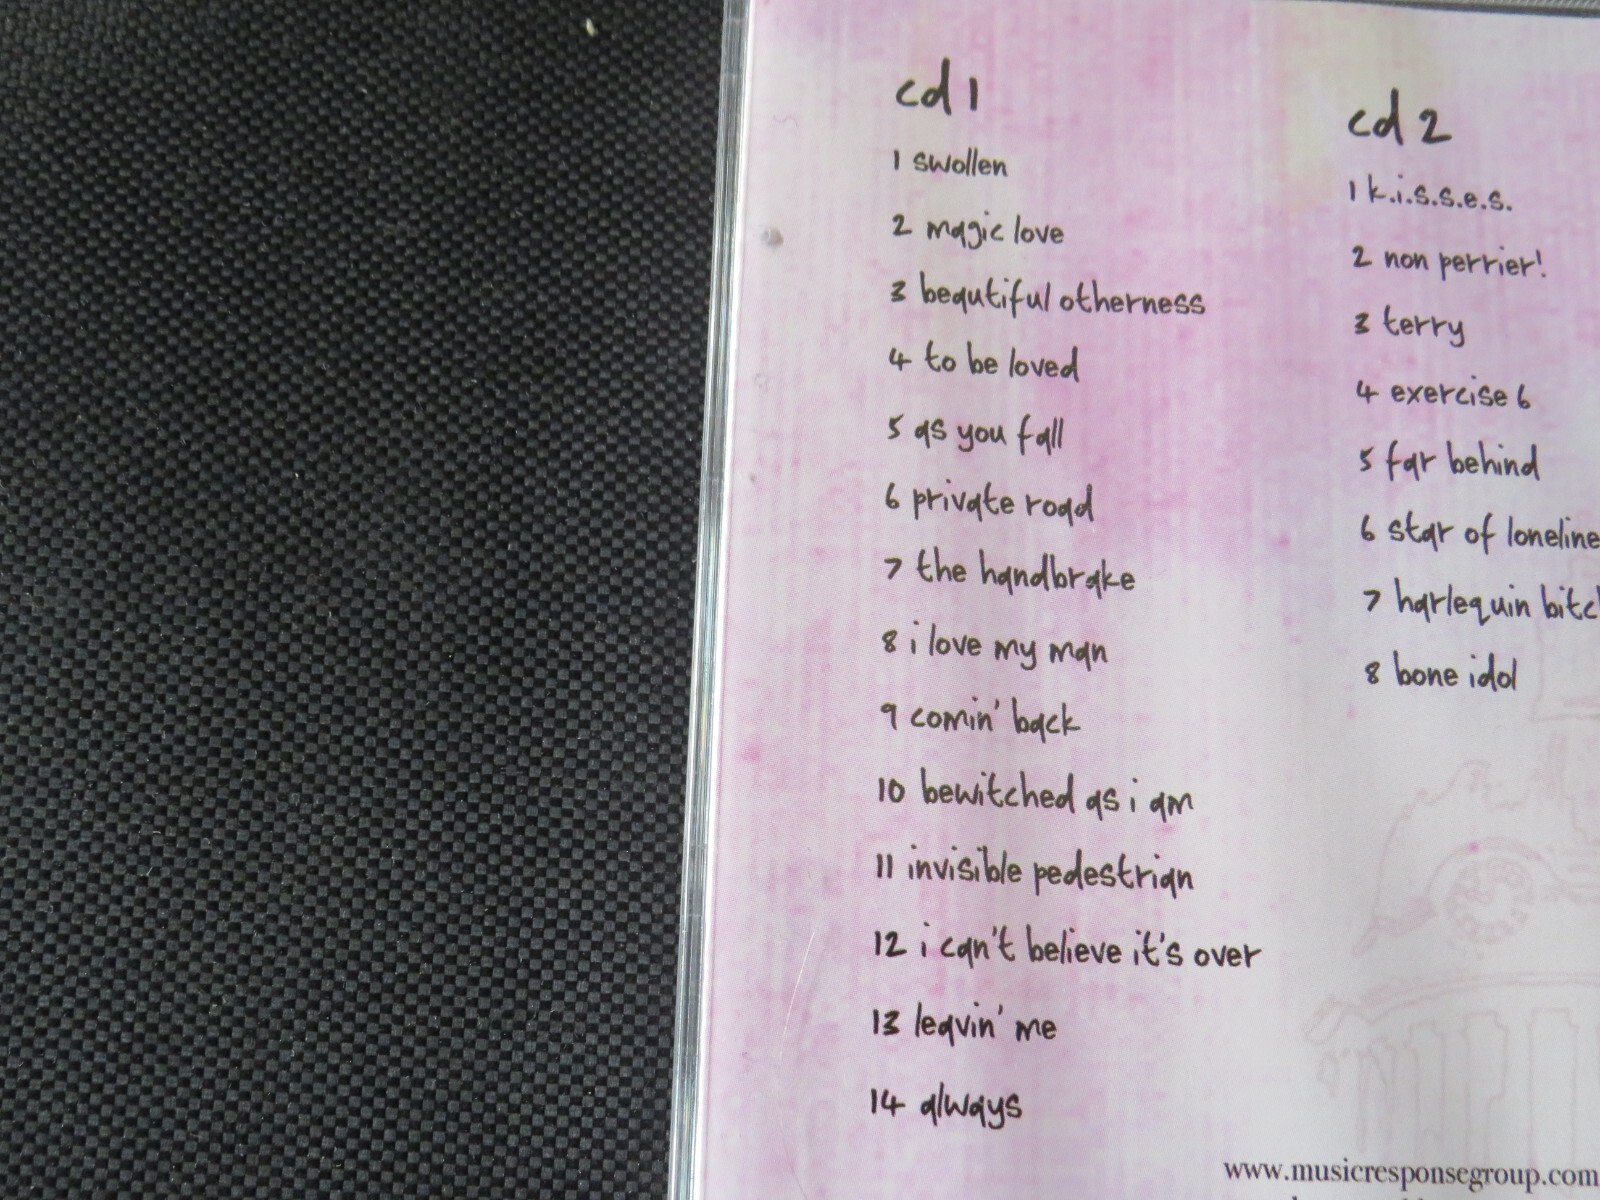 cd 1
1 swollen
2 magic love
3 beautiful otherness
4 to be loved
5 as you fall
6 private road
7 the handbrake
8 i love my man
9 comin' back
10 bewitched as i am
11 invisible pedestrian
12 i can't believe it's over
13 leavin' me
14 always
cd 2
1 k.i.s.s.e.s.
2 non perrier!
3 terry
4 exercise 6
5 far behind
6 star of
7 harlequin
8 bone idol
www.musicresponsegroup.com